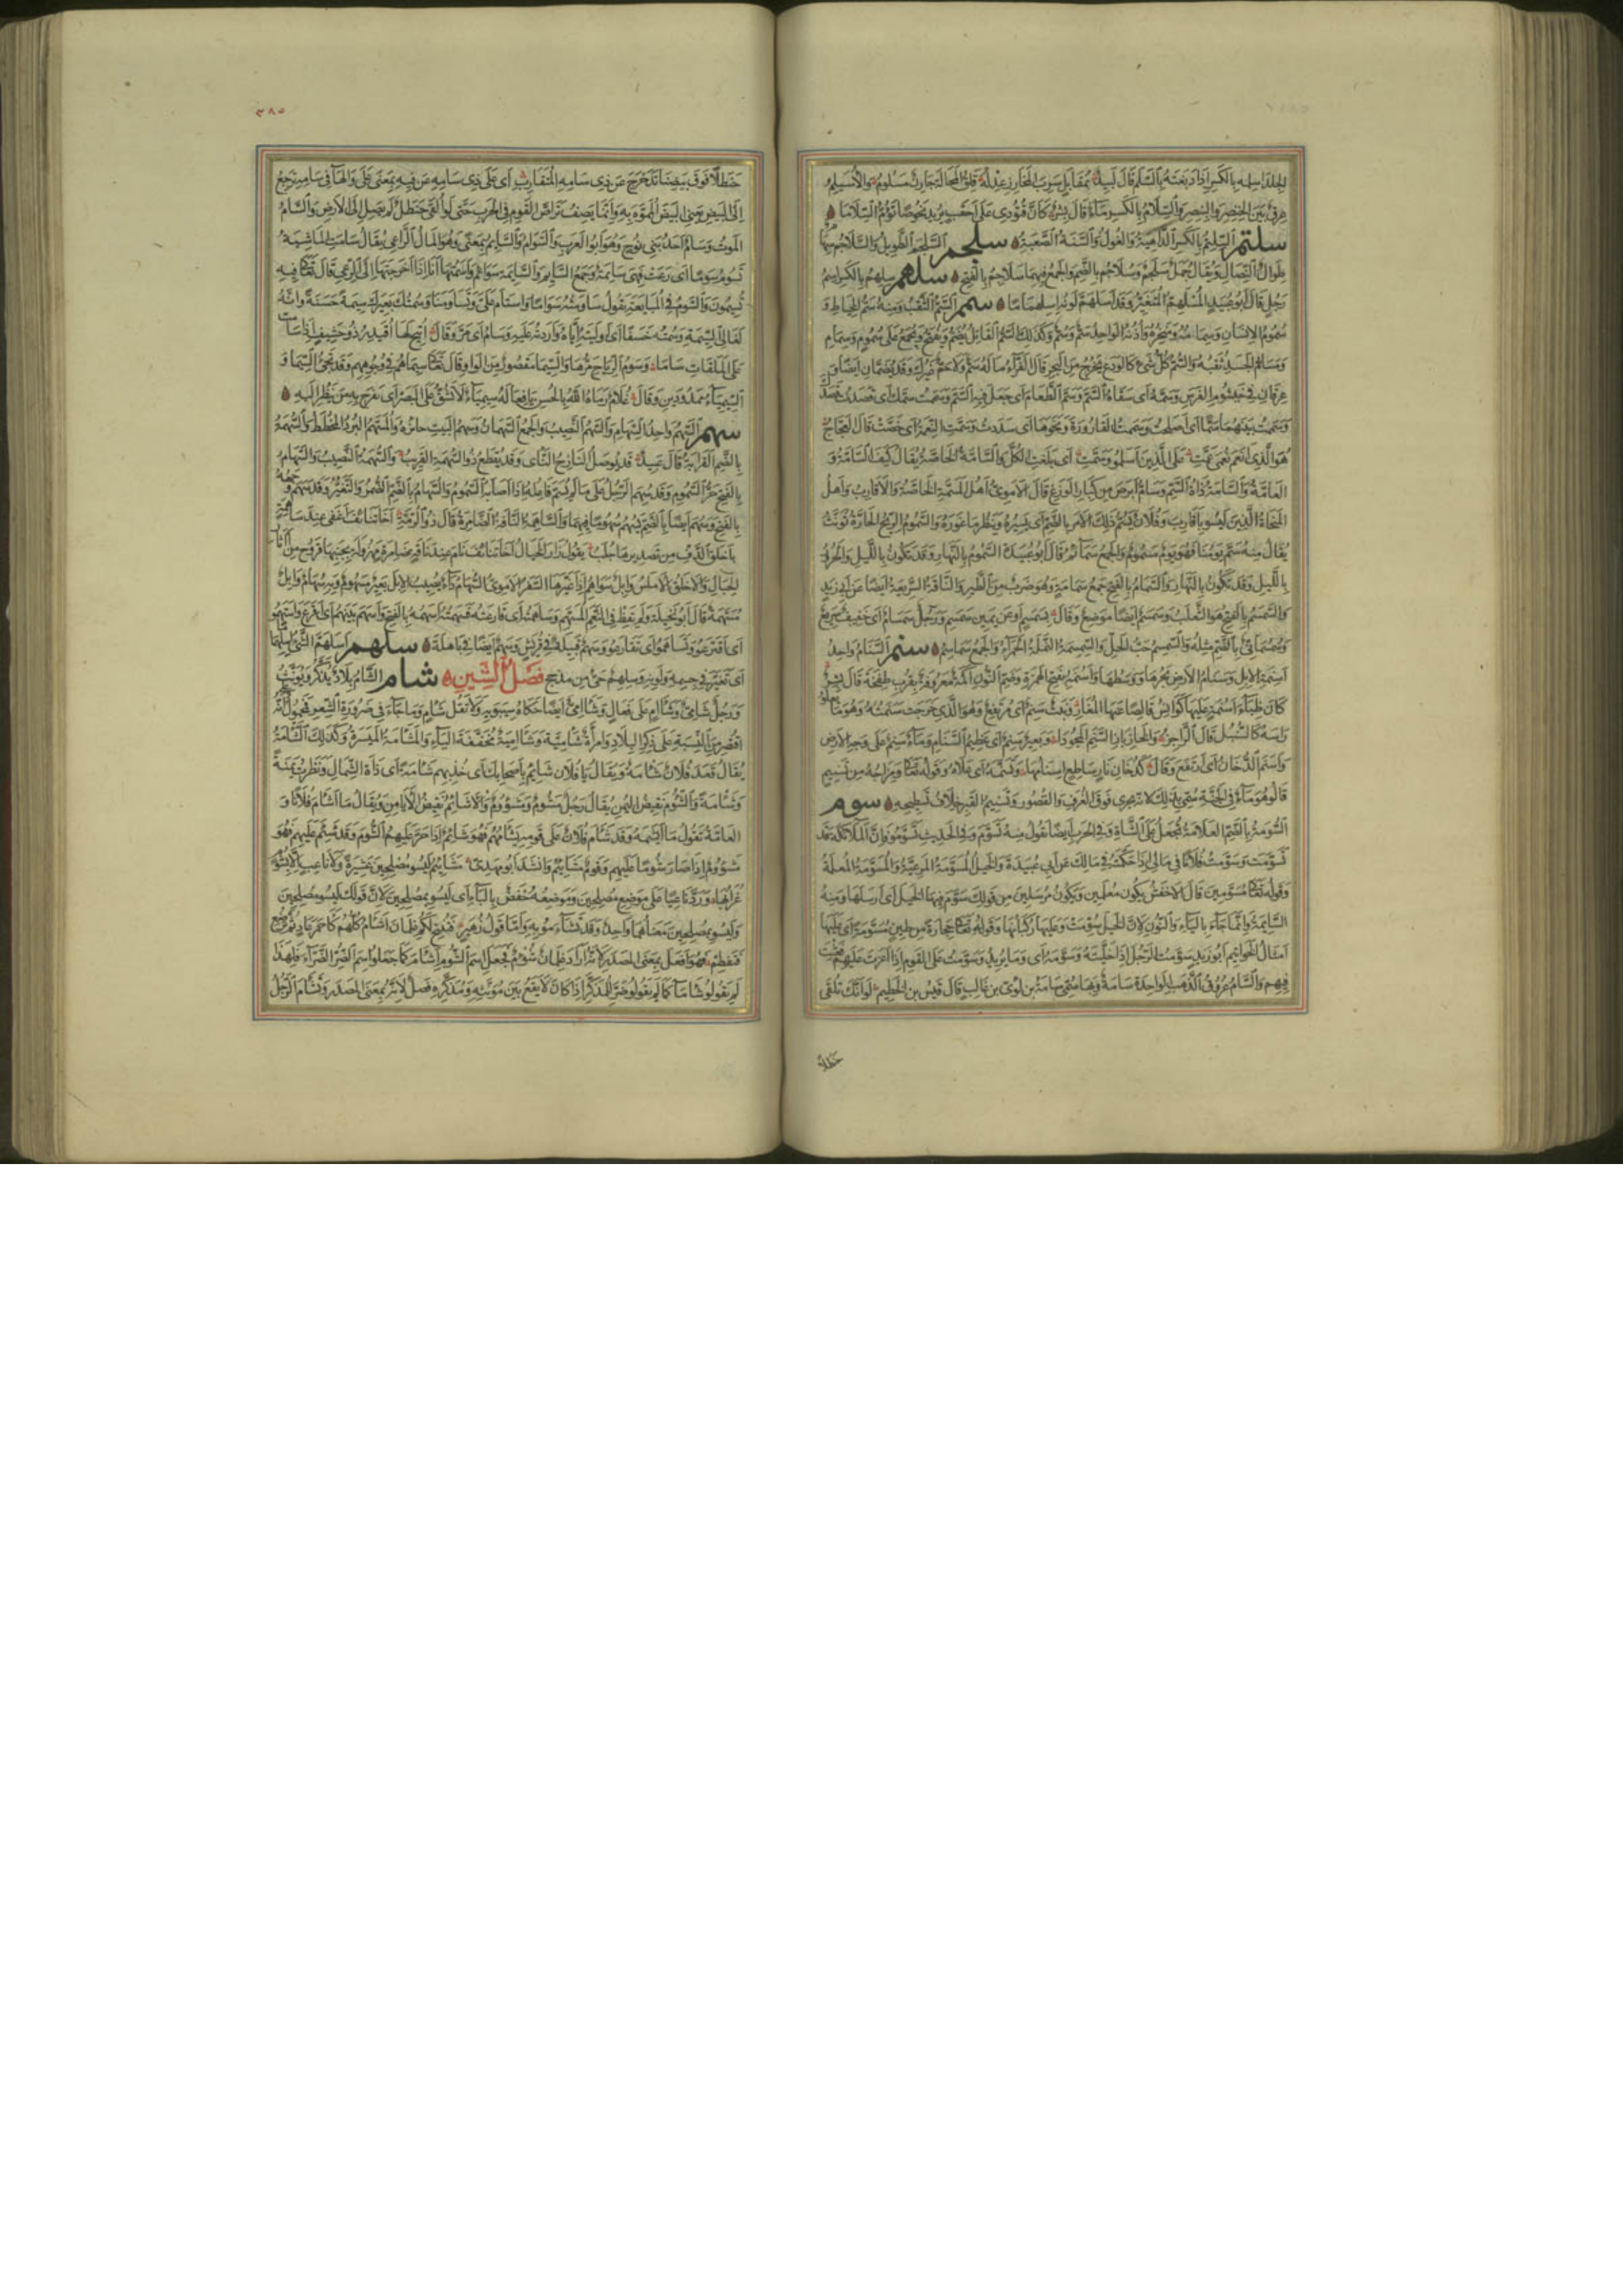 الجلد اسلمه بالكسر اذا دبغته بالسلم قال لبيد بمقابل سرب المخارز عدله قلق المحالة جارن مسلوم والاسيلم
عرق بين الخنصر والبنصر والسلام بالكسر ماء قال بشر كان قتودي على احقب يريد نحوصا تؤم السلاما
سلتم السلتم بالكسر الداهية والغول والسنة الصعبة سلجم السلجم الطويل والسلاجم سهام
طوال النصال ويقال جمل سلجم وسلاجم بالضم والجمع فيهما سلاجم بالفتح سلهم سلهم بالكسر اسم
رجل قال ابو عبيد المسلهم المتغير وقد اسلهم لونه اسلهماما سمم السم الثقب ومنه سم الخياط و
سموم الانسان وسمامه فمه ومنخره واذنه الواحد سم وسم وكذلك السم القاتل يضم ويفتح ويجمع على سموم وسمام
ومسام الجسد ثقبه والسم كل شيء كالودع يخرج من البحر قال الفراء ما له سم ولا حم غيرك وقد يضمان ايضا و
عرقان في خيشوم الفرس وسمه اي سقاه السم وسم الطعام اي جعل فيه السم وسممت سمك اي قصدت قصدك
وسممت بينهما سما اي اصلحت وسممت القارورة ونحوها اي سددت وسمت النعمة اي خصت قال العجاج
هو الذي انعم نعمى عمت على الذين اسلمو وسمت اي بلغت الكل والسامة الخاصة يقال كيف السامة و
العامة والسامة ذات السم وسام ابرص من كبار الوزغ قال الاموي اهل المسمة الخاصة والاقارب واهل
المنحاة الذين ليسو باقارب وفلان يسم ذلك الامر بالضم اي يسبره وينظر ما غوره والسموم الريح الحارة تؤنث
يقال منه سم يومنا فهو يوم مسموم والجمع سمائم قال ابو عبيدة السموم بالنهار وقد تكون بالليل والحرور
بالليل وقد تكون بالنهار والسمام بالفتح جمع سمامة وهو ضرب من الطير والناقة السريعة ايضا عن ابي زيد
والسمسم بالفتح هو الثعلب وسمسم ايضا موضع وقال بسمسم او عن يمين سمسم ورجل سمسام اي خفيف سريع
وسمسماني بالضم مثله والسمسم حب الحل والسمسمة النملة الحمراء والجمع سماسم سنم السنام واحد
اسنمة الابل وسنام الارض نحرها ووسطها واسنمة بفتح الهمزة وضم النون اكمة معروفة بقرب طخفة قال بشر
كان ظباء اسنمة عليها كوانس قالصا عنها المغار ونبت سنم اي مرتفع وهو الذي خرجت سنمته وهو ما يعلو
راسه كالسنبل قال الراجز والحازباز السنم المجودا وبعير سنم اي عظيم السنام وماء سنم على وجه الارض
واسنم الدخان اي ارتفع وقال كدخان نار ساطع اسنامها وتسنمه اي علاه وقوله تعالى ومزاجه من تسنيم
قالو هو ماء في الجنة سمي بذلك لانه يجري فوق الغرف والقصور وتسنيم القبر خلاف تسطيحه سوم
السومة بالضم العلامة تجعل على الشاة وفي الحرب ايضا تقول منه تسوم وفي الحديث تسوموا فان الملائكة قد
تسومت وسومت فلانا في مالي اذا حكمته في مالك عن ابي عبيدة والخيل المسومة المرعية والمسومة المعلمة
وقوله تعالى مسومين قال الاخفش يكون معلمين ويكون مرسلين من قولك سوم فيها الخيل اي ارسلها ومنه
السائمة وانما جاء بالياء والنون لان الخيل سومت وعليها ركبانها وقوله تعالى حجارة من طين مسومة اي عليها
امثال الخواتيم ابو زيد سومت الرجل اذا خليته وسومه اي وما يريد وسومت على القوم اذا اغرت عليهم فعثت
فيهم والسام عروق الذهب الواحدة سامة وبها سمي سامة بن لؤي بن غالب قال قيس بن الخطيم لو انك تلقى
حنظلا
٣٨٥
حنظلا فوق بيضنا تدحرج عن ذي سامه المتقارب اي على ذي سامه عن فيه بمعنى على والهاء في سامه ترجع
الى البيض يعني البيض المموه به وانما يصف تراص القوم في الحرب حتى لو القي حنظل لم يصل الى الارض والسام
الموت وسام احد بني نوح وهو ابو العرب والسوام والسائم بمعنى وهو المال الراعي يقال سامت الماشية
تسوم سوما اي رعت فهي سائمة وجمع السائم والسائمة سوائم واسمتها انا اذا اخرجتها الى الرعي قال تعالى فيه
تسيمون والسوم في المبايعة تقول ساومته سواما واستام علي وتساومنا وسمتك بعيرك سيمة حسنة وانه
لغالي السيمة وسمته خسفا اي اوليته اياه واردته عليه وسام اي مر وقال اتيح لها اقيدر ذو حشيف اذا سامت
على الملقات ساما وسوم الرياح مرها والسيما مقصور من الواو قال تعالى سيماهم في وجوههم وقد تجئ السيما و
السيمياء ممدودين وقال غلام رماه الله بالحسن يافعا له سيمياء لا تشق على البصر اي تفرح به من ينظر اليه
سهم السهم واحد السهام والسهم النصيب والجمع السهمان وسهم البيت جائزه والمسهم البرد المخطط والسهمة
بالضم القرابة قال عبيد قد يوصل النازح النائي وقد يقطع ذو السهمة القريب والسهمة النصيب والسهام
بالفتح حر السموم وقد سهم الرجل على ما لم يسم فاعله اذا اصابه السموم والسهام بالضم الضمر والتغير وقد سهم وجهه
بالفتح وسهم ايضا بالضم يسهم سهوما فيهما والساهمة الناقة الضامرة قال ذو الرمة اخا تنائف اغفى عند ساهمة
باخلق الدف من تصديرها جلب يقول زار الخيال اخا تنائف نام عند ناقة ضامرة مهزولة بجنبها قروح من اثار
الحبال والاخلق الاملس وابل سواهم اذا غيرها السفر الاموي السهام داء يصيب الابل بعير مسهوم وبه سهام وابل
مسهمة قال ابو نخيلة ولم يقظ في النعم المسهم وساهمته اي قارعته فسهمته اسهمه بالفتح واسهم بينهم اي اقرع واستهمو
اي اقترعو وتساهمو اي تقارعو وسهم قبيلة في قريش وسهم ايضا في باهلة سلهم اسلهم الشيء اسلهماما
اي تغير في جسمه ولونه وسلهم حي من مذحج فصل الشين شام الشام بلاد يذكر ويؤنث
ورجل شامي وشآم على فعال وشآمي ايضا حكاه سيبويه ولا تقل شام وما جاء في ضرورة الشعر فمحمول على انه
اقتصر من النسبة على ذكر البلاد وامراة شامية وشآمية مخففة الياء والمشامة الميسرة وكذلك الشامة
يقال قعد فلان شامة ويقال يا فلان شائم باصحابك اي خذ بهم شامة اي ذات الشمال ونظرت يمنة
وشامة والشؤم نقيض اليمن يقال رجل مشوم ومشؤوم والاشائم نقيض الايامن ويقال ما اشام فلانا و
العامة تقول ما ايشمه وقد شام فلان على قومه يشامهم فهو شائم اذا جر عليهم الشؤم وقد شئم عليهم فهو
مشؤوم اذا صار شؤما عليهم وقوم مشائيم وانشد ابو مهدي مشائيم ليسو مصلحين عشيرة ولا ناعب الا بشؤم
غرابها ورد ناعبا على موضع مصلحين وموضعه خفض بالباء اي ليسو بمصلحين لان قولك ليسو مصلحين
وليسو بمصلحين معناهما واحد وقد تشاءمو به واما قول زهير فتنتج لكم غلمان اشام كلهم كاحمر عاد ثم ترضع
فتفطم فهو افعل بمعنى المصدر لانه اراد غلمان شؤم فجعل اسم الشؤم اشام كما جعلوا اسم الضر الضراء فلهذا
لم يقولو شاماء كما لم يقولو ضر للمذكر اذا كان لا يقع بين مؤنثه ومذكره فصل لانه بمعنى المصدر وتشام الرجل